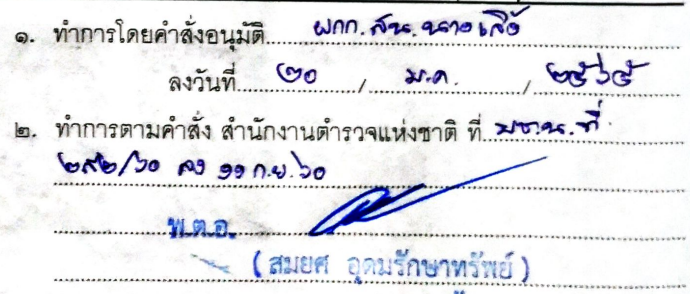 ๑. ทำการโดยคำสั่งอนุมัติ ผกก.สน.นางเลิ้ง
ลงวันที่ ๒๐ / ม.ค. / ๒๕๖๕
๒. ทำการตามคำสั่ง สำนักงานตำรวจแห่งชาติ ที่ บช.น. ที่
๒๙๒/๖๐ ลง ๑๑ ก.ย. ๖๐
พ.ต.อ.
(สมยศ อุดมรักษาทรัพย์)